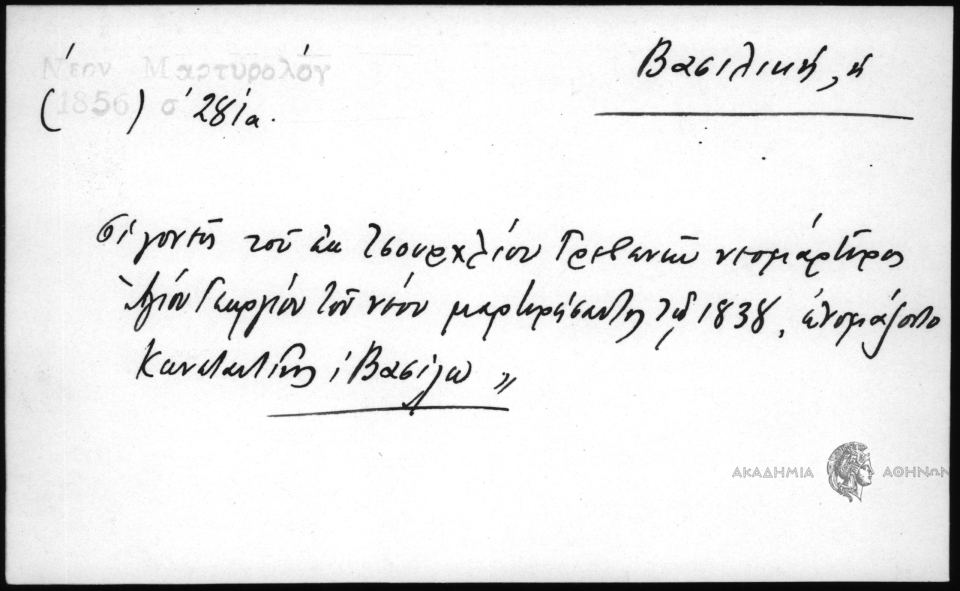 Νέον Μαρτυρολόγ
(1856) σ' 281α.
Βασιλική, ἡ
οἱ γονεῖς τοῦ ἐκ Τσουρχλίου Γρεβενῶν νεομάρτυρος
Ἁγίου Γεωργίου τοῦ νέου μαρτυρήσαντος τῷ 1838, ὠνομάζοντο
Κωνσταντῖνος, Βασίλω "
ΑΚΑΔΗΜΙΑ ΑΘΗΝΩΝ